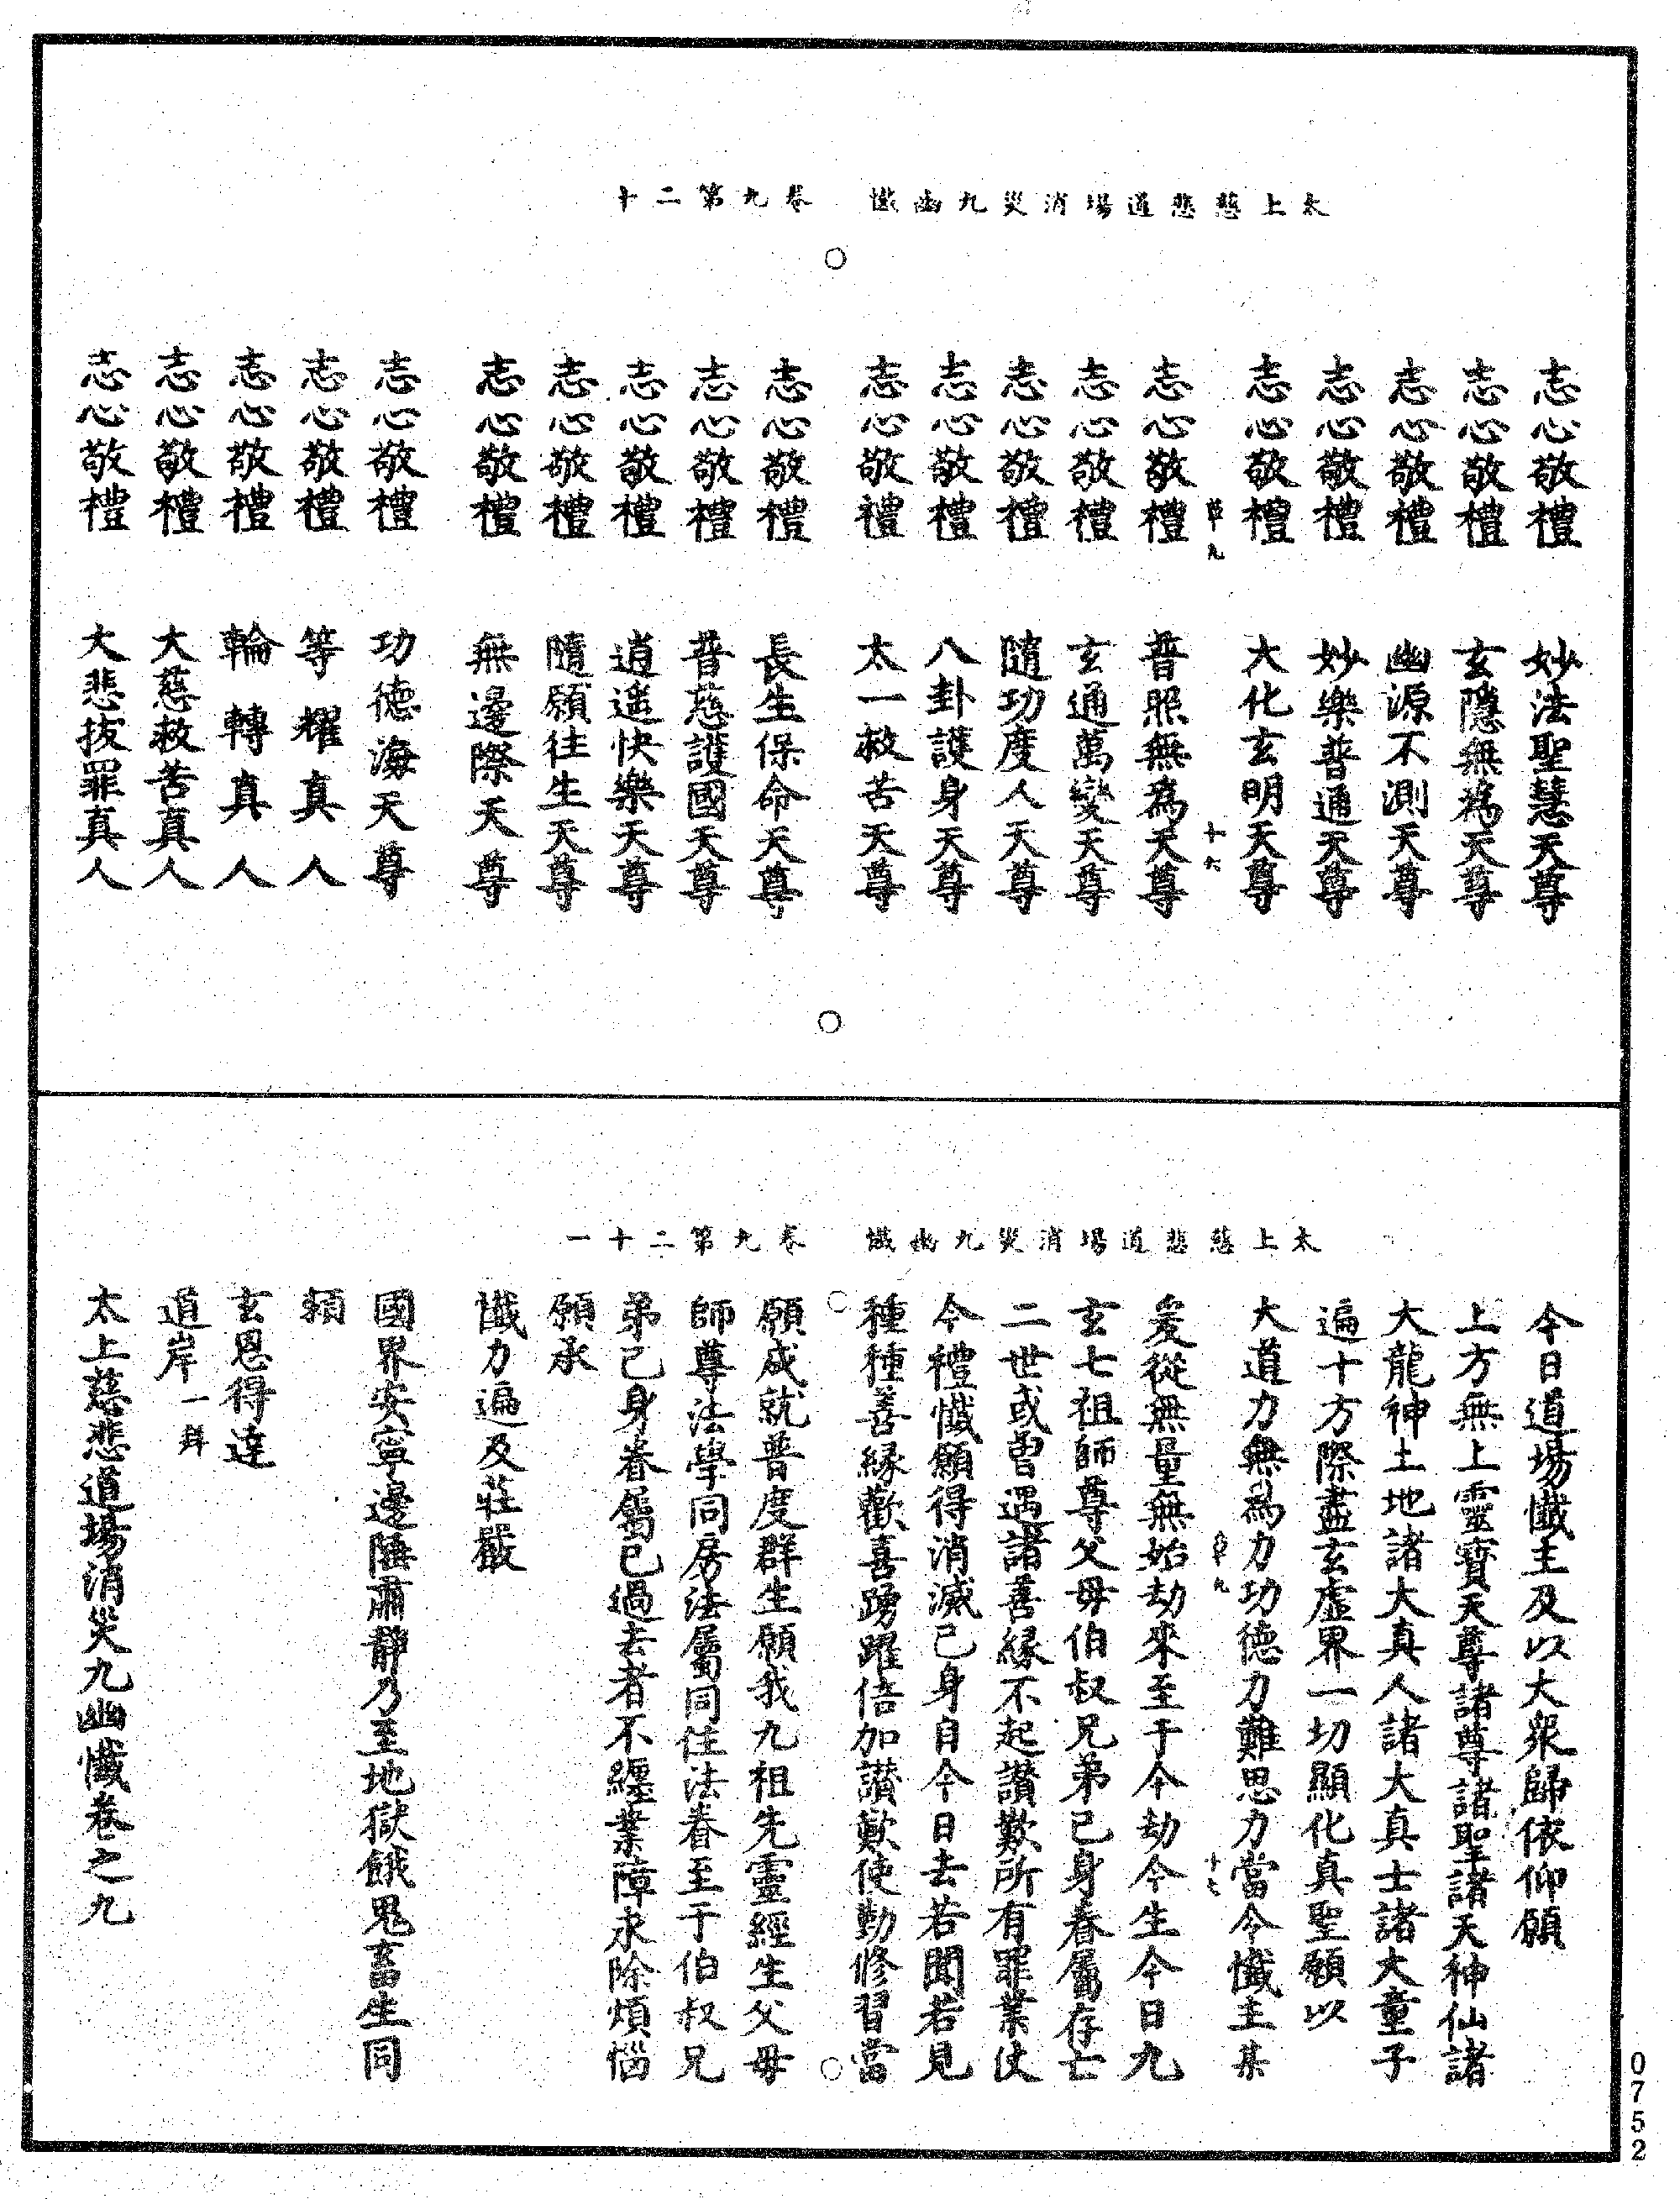 太上慈悲道場消災九幽懺　卷九第二十
志心敬禮　妙法聖慧天尊
志心敬禮　玄隱無為天尊
志心敬禮　幽源不測天尊
志心敬禮　妙樂普通天尊
志心敬禮　大化玄明天尊
九　十六
志心敬禮　普照無為天尊
志心敬禮　玄通萬變天尊
志心敬禮　隨功度人天尊
志心敬禮　八卦護身天尊
志心敬禮　太一救苦天尊
志心敬禮　長生保命天尊
志心敬禮　普慈護國天尊
志心敬禮　逍遙快樂天尊
志心敬禮　隨願往生天尊
志心敬禮　無邊際天尊
志心敬禮　功德海天尊
志心敬禮　等耀真人
志心敬禮　輪轉真人
志心敬禮　大慈救苦真人
志心敬禮　大悲拔罪真人
太上慈悲道場消災九幽懺　卷九第二十一
今日道場懺主及以大眾歸依仰願
上方無上靈寶天尊諸尊諸聖諸天神仙諸
大龍神土地諸大真人諸大真士諸大童子
遍十方際盡玄虛界一切顯化真聖願以
大道力無為力功德力難思力當令懺主某
九　十七
爰從無量無始劫來至于今劫今生今日九
玄七祖師尊父母伯叔兄弟己身眷屬存亡
二世或曾遇諸善緣不起讚歎所有罪業仗
今禮懺願得消滅己身自今日去若聞若見
種種善緣歡喜踴躍倍加讚歎使勤修習當
願成就普度群生願我九祖先靈經生父母
師尊法學同房法屬同住法眷至于伯叔兄
弟己身眷屬已過去者不纏業障永除煩惱
願承
懺力遍及莊嚴
國界安寧邊陲肅靜乃至地獄餓鬼畜生同
賴
玄恩得達
道岸 一拜
太上慈悲道場消災九幽懺卷之九
0752